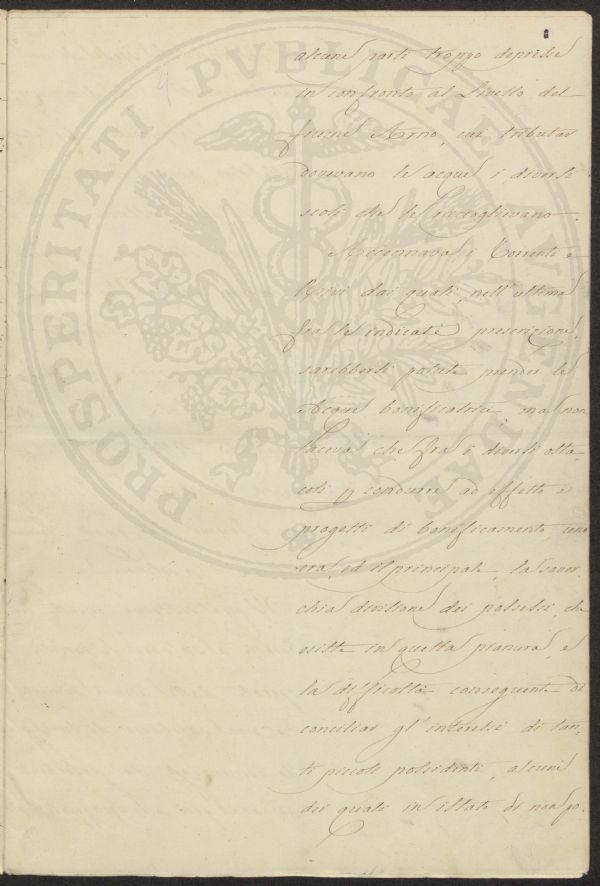 alcune parti troppo depresse
in confronto al Livello del
fiume Arno, cui tributar
dovevano le acque i diversi
scoli che le raccoglievano.
Accennava i Torrenti e
Rivi dai quali, nell'ultima
fra le indicate prescrizioni
sarebbersi potute prender le
Acque bonificatrici, ma non
taceva che fra i diversi osta-
coli p condurre ad effetto i
progetti di bonificamento, uno
era, ed il principale, la sover-
chia divisione dei possessi, che
esiste in quella pianura, e
la difficoltà conseguente di
conciliar gl'interessi di tan-
ti piccoli possidenti, alcuni
dei quali in istato di non po-
PROSPERITATI PVBLICAE AVGENDAE